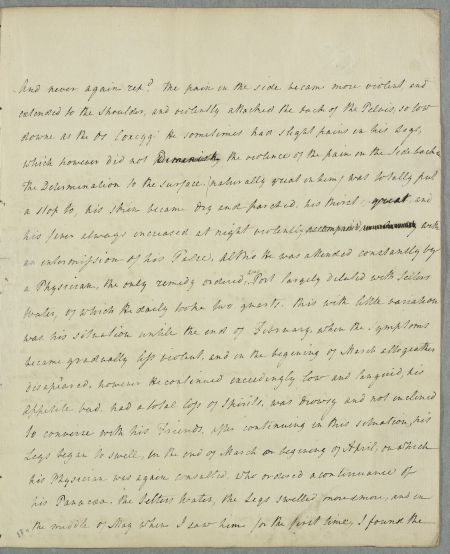 And never again repd. the pain in the side became more violent, and
extended to the Shoulder, and violently attacked the back of the Pelvis, so low
downe as the Os Coccyg: He sometimes had slight pains in his Legs,
which however did not Diminish the violence of the pain in the side back &
the Determination to the surface (naturally great in him) was totally put
a stop to, his Skin became dry and parched. his thirst great, and
his fever always encreased at night violently with
an intermission of his Pulse. altho He was attended constantly by
a Physician, the only remedy ordered, Port largely diluted with Selters
Water, of which He daily took two quarts. this with little variation
was his situation untill the end of February, when the symptoms
became gradually less violent, and in the begining of March altogeather
disapeared, however He continued exceedingly low and languid, his
appetite bad. had a total loss of Spirits, was drowsy and not inclined
to converse with his Friends, after continuing in this situation, his
Legs began to swell, in the end of March or begining of April, on which
his Physician was again consulted, who ordered a continuance of
his Panacea. the Selters Water, the Legs swelled more & more, and in
the middle of May when I saw him for the first time, I found the